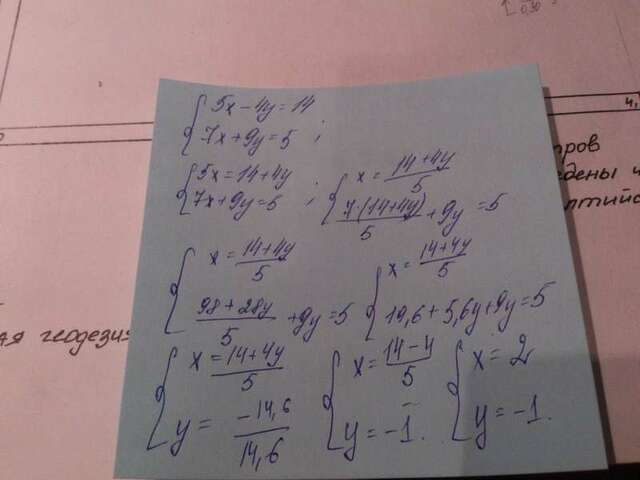 { 5x - 4y = 14
7x + 9y = 5 ;
{ 5x = 14 + 4y
7x + 9y = 5 ; { x = (14 + 4y)/5
7(14 + 4y)/5 + 9y = 5
{ x = (14 + 4y)/5
(98 + 28y)/5 + 9y = 5 { x = (14 + 4y)/5
19,6 + 5,6y + 9y = 5
{ x = (14 + 4y)/5
y = -14,6/14,6 { x = (14 - 4)/5
y = -1. { x = 2
y = -1.
геодезия